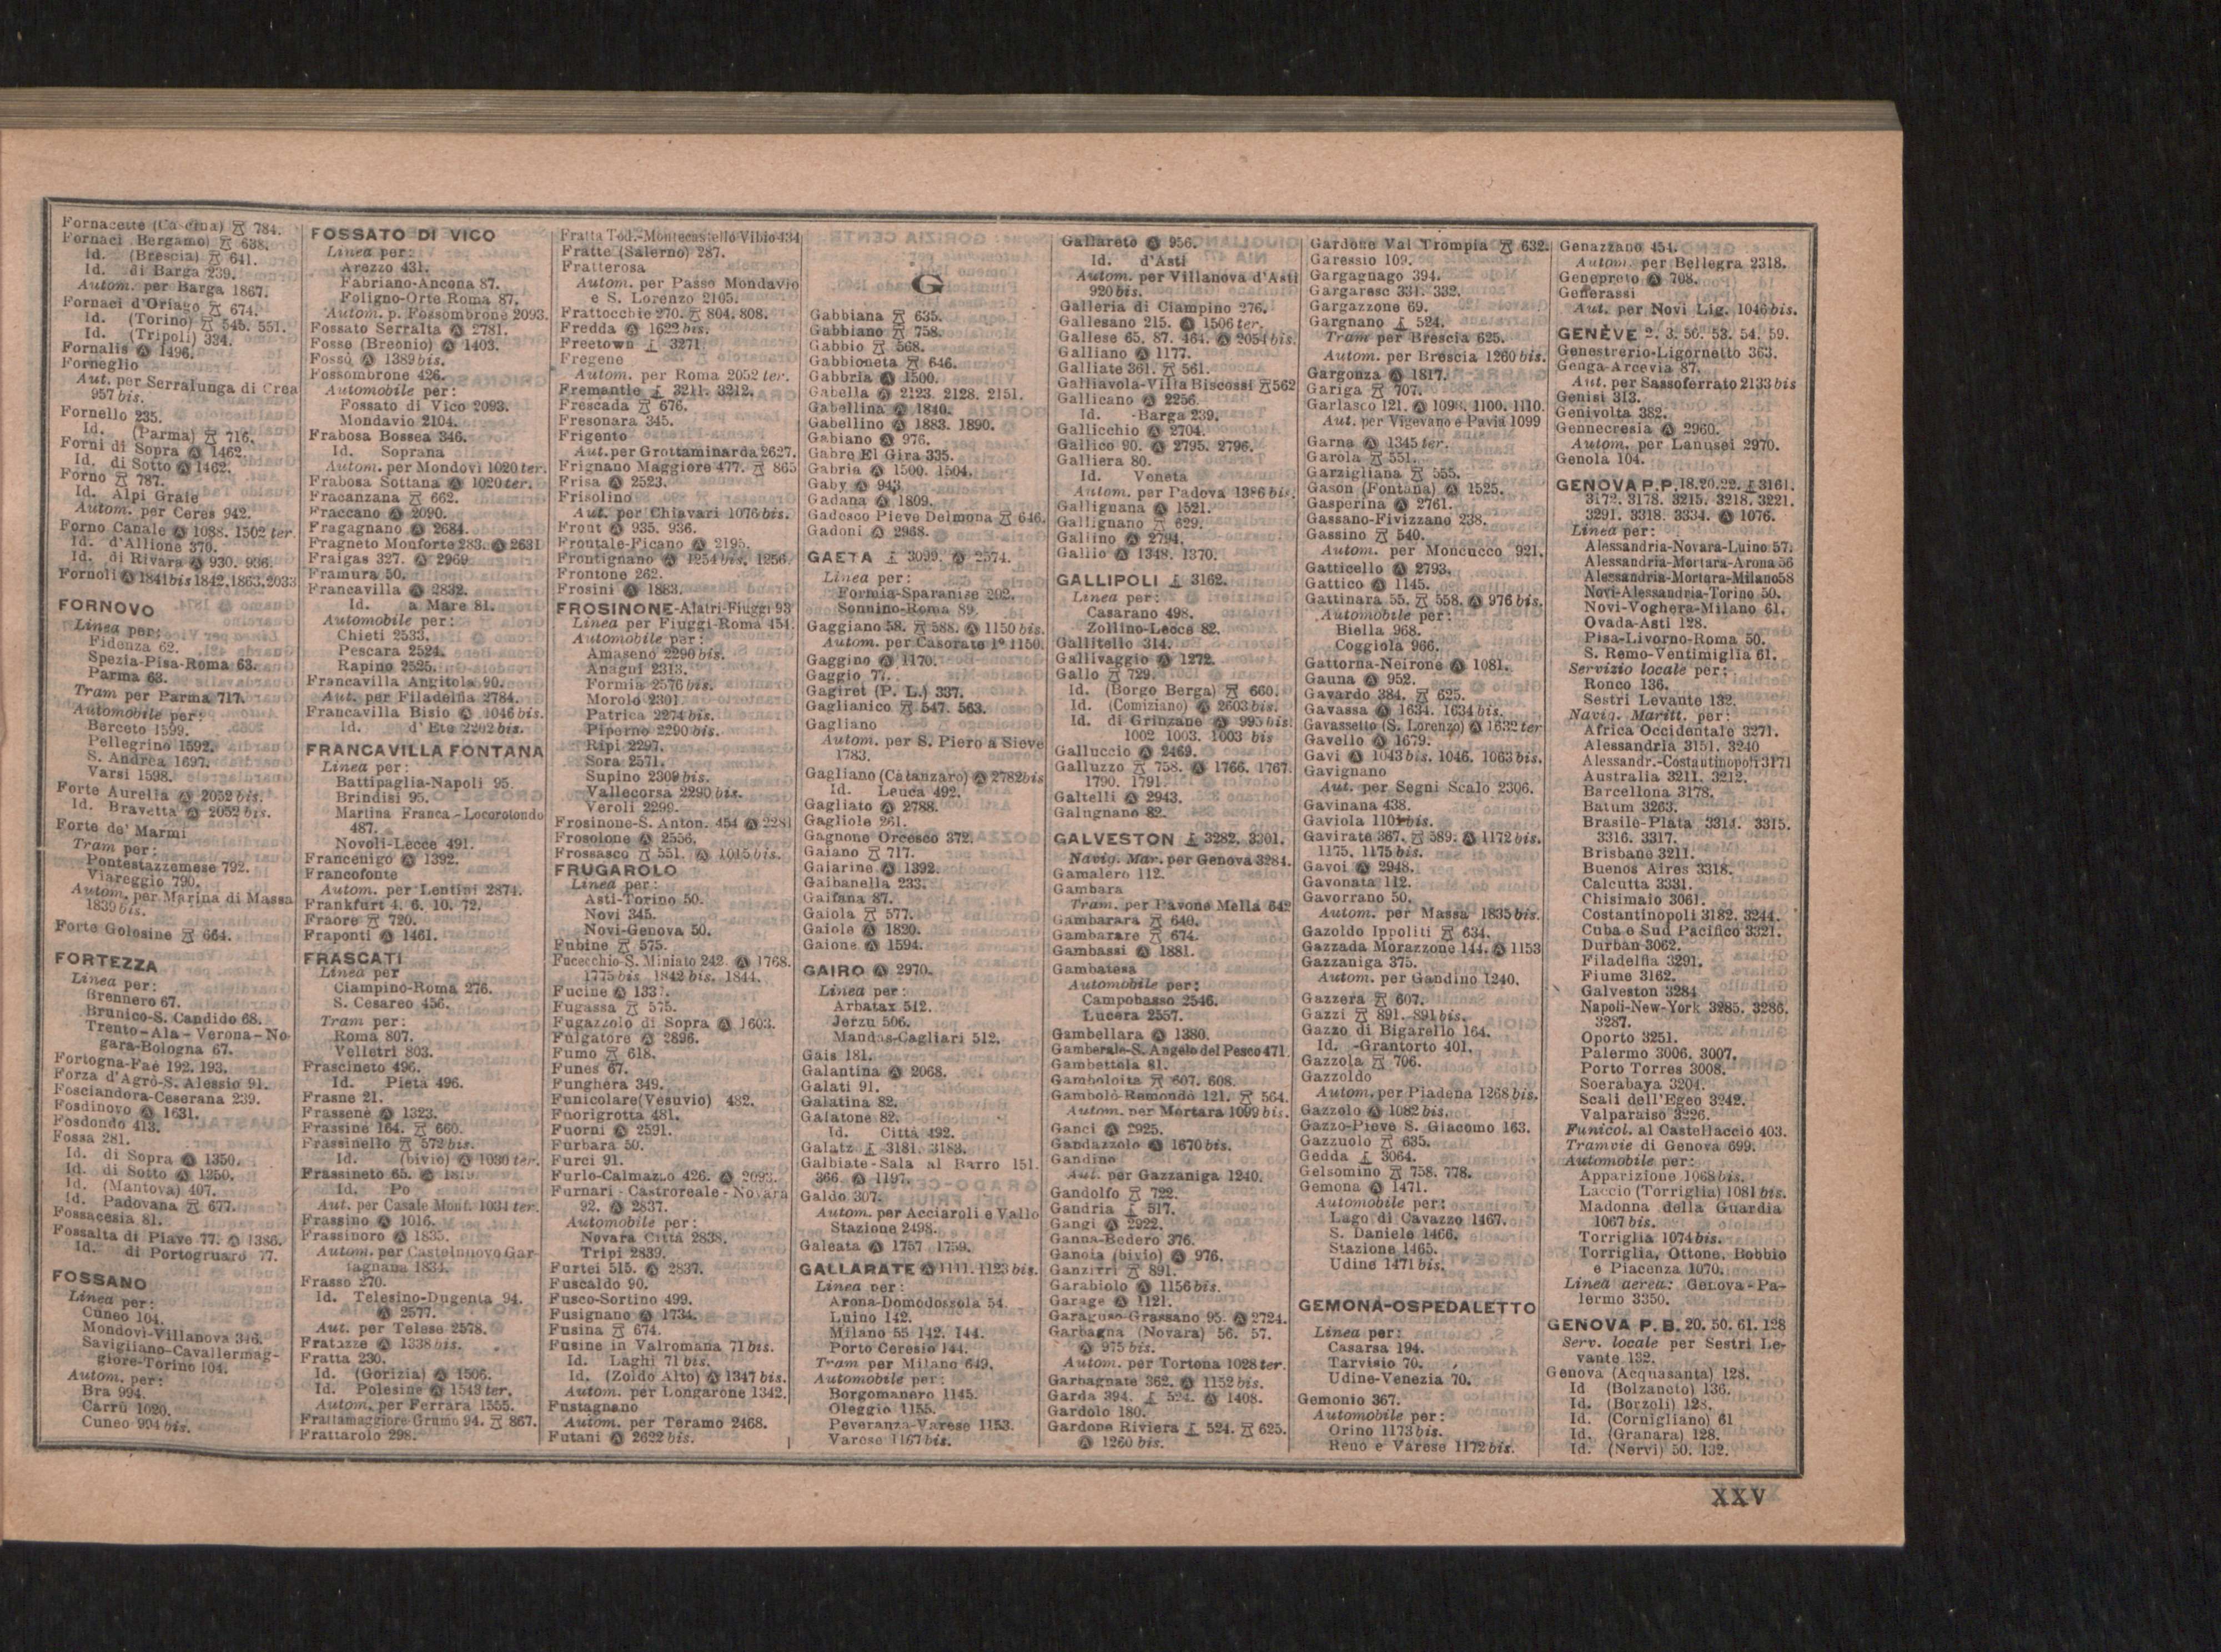 Fornacette (Cascina) 784.
Fornaci Bergamo) 638.
Id. (Brescia) 641.
Id. di Barga 239.
Autom. per Barga 1867.
Fornaci d'Oriago 674.
Id. (Torino) 545. 551.
Id. (Tripoli) 334.
Fornalis Ⓐ 1496.
Forneglio
Aut. per Serralunga di Crea
957 bis.
Fornello 235.
Id. (Parma) 716.
Forni di Sopra Ⓐ 1462.
Id. di Sotto Ⓐ 1462.
Forno 787.
Id. Alpi Graie
Autom. per Ceres 942.
Forno Canale Ⓐ 1088. 1502 ter.
Id. d'Allione 370.
Id. di Rivara Ⓐ 930. 936.
Fornoli Ⓐ 1841 bis 1842. 1863. 2033
FORNOVO
Linea per:
Fidenza 62.
Spezia-Pisa-Roma 63.
Parma 63.
Tram per Parma 717.
Automobile per:
Berceto 1599.
Pellegrino 1592.
S. Andrea 1697.
Varsi 1598.
Forte Aurelia Ⓐ 2052 bis.
Id. Bravetta Ⓐ 2052 bis.
Forte de' Marmi
Tram per:
Pontestazzemese 792.
Viareggio 790.
Autom. per Marina di Massa
1839 bis.
Forte Golosine 664.
FORTEZZA
Linea per:
Brennero 67.
Brunico-S. Candido 68.
Trento-Ala-Verona-No-
gara-Bologna 67.
Fortogna-Faè 192. 193.
Forza d'Agrò-S. Alessio 91.
Fosciandora-Ceserana 239.
Fosdinovo Ⓐ 1631.
Fosdondo 413.
Fossa 281.
Id. di Sopra Ⓐ 1350.
Id. di Sotto Ⓐ 1350.
Id. (Mantova) 407.
Id. Padovana 677.
Fossacesia 81.
Fossalta di Piave 77. Ⓐ 1386.
Id. di Portogruaro 77.
FOSSANO
Linea per:
Cuneo 104.
Mondovì-Villanova 346.
Savigliano-Cavallermag-
giore-Torino 104.
Autom. per:
Bra 994.
Carrù 1020.
Cuneo 994 bis.
FOSSATO DI VICO
Linea per:
Arezzo 431.
Fabriano-Ancona 87.
Foligno-Orte Roma 87.
Autom. p. Fossombrone 2093.
Fossato Serralta Ⓐ 2781.
Fosse (Breonio) Ⓐ 1403.
Fossò Ⓐ 1389 bis.
Fossombrone 426.
Automobile per:
Fossato di Vico 2093.
Mondavio 2104.
Frabosa Bossea 346.
Id. Soprana
Autom. per Mondovì 1020 ter.
Frabosa Sottana Ⓐ 1020 ter.
Fracanzana 662.
Fraccano Ⓐ 2090.
Fragagnano Ⓐ 2684.
Fragneto Monforte 283. Ⓐ 2631
Fraigas 327. Ⓐ 2969
Framura 50.
Francavilla Ⓐ 2832.
Id. a Mare 81.
Automobile per:
Chieti 2533.
Pescara 2524.
Rapino 2525.
Francavilla Angitola 90.
Aut. per Filadelfia 2784.
Francavilla Bisio Ⓐ 1046 bis.
Id. d'Ete 2202 bis.
FRANCAVILLA FONTANA
Linea per:
Battipaglia-Napoli 95.
Brindisi 95.
Martina Franca-Locorotondo
487.
Novoli-Lecce 491.
Francenigo Ⓐ 1392.
Francofonte
Autom. per Lentini 2874.
Frankfurt 4. 6. 10. 72.
Fraore 720.
Fraponti Ⓐ 1461.
FRASCATI
Linea per
Ciampino-Roma 276.
S. Cesareo 456.
Tram per:
Roma 807.
Velletri 803.
Frascineto 496.
Id. Pietà 496.
Frasne 21.
Frassenè Ⓐ 1323.
Frassine 164. 660.
Frassinello 572 bis.
Id. (bivio) Ⓐ 1030 ter.
Frassineto 65. Ⓐ
Id. Po
Aut. per Casale Monf. 1031 ter.
Frassino Ⓐ 1016.
Frassinoro Ⓐ 1835.
Autom. per Castelnuovo Gar-
fagnana 1834.
Frasso 270.
Id. Telesino-Dugenta 94.
Ⓐ 2577.
Aut. per Telese 2578.
Fratazze Ⓐ 1338 bis.
Fratta 230.
Id. (Gorizia) Ⓐ 1506.
Id. Polesine Ⓐ 1543 ter.
Autom. per Ferrara 1555.
Frattamaggiore-Grumo 94. 867.
Frattarolo 298.
Fratta Tod.-Montecastello Vibio 434
Fratte (Salerno) 287.
Fratterosa
Autom. per Passo Mondavio
e S. Lorenzo 2105.
Frattocchie 270. 804. 808.
Fredda Ⓐ 1622 bis.
Freetown 3271.
Fregene
Autom. per Roma 2052 ter.
Fremantle 3211. 3212.
Frescada 676.
Fresonara 345.
Frigento
Aut. per Grottaminarda 2627.
Frignano Maggiore 477. 865
Frisa Ⓐ 2523.
Frisolino
Aut. per Chiavari 1076 bis.
Front Ⓐ 935. 936.
Frontale-Ficano Ⓐ 2195.
Frontignano Ⓐ 1254 bis. 1256.
Frontone 262.
Frosini Ⓐ 1883.
FROSINONE-Alatri-Fiuggi 93
Linea per Fiuggi-Roma 454.
Automobile per:
Amaseno 2290 bis.
Anagni 2313.
Formia 2576 bis.
Morolo 2301
Patrica 2274 bis.
Piperno 2290 bis.
Ripi 2297.
Sora 2571.
Supino 2309 bis.
Vallecorsa 2290 bis.
Veroli 2299.
Frosinone-S. Anton. 454 Ⓐ 2281
Frosolone Ⓐ 2556.
Frossasco 551. Ⓐ 1015 bis.
FRUGAROLO
Linea per:
Asti-Torino 50.
Novi 345.
Novi-Genova 50.
Fubine 575.
Fucecchio-S. Miniato 242. Ⓐ 1768.
1775 bis. 1842 bis. 1844.
Fucine Ⓐ
Fugassa 575.
Fugazzolo di Sopra Ⓐ 1603.
Fulgatore Ⓐ 2896.
Fumo 618.
Funes 67.
Funghera 349.
Funicolare (Vesuvio) 482.
Fuorigrotta 481.
Fuorni Ⓐ 2591.
Furbara 50.
Furci 91.
Furlo-Calmazzo 426. Ⓐ 2093.
Furnari-Castroreale-Novara
92. Ⓐ 2837.
Automobile per:
Novara Città 2838.
Tripi 2839.
Furtei 515. Ⓐ 2837.
Fuscaldo 90.
Fusco-Sortino 499.
Fusignano Ⓐ 1734.
Fusina 674.
Fusine in Valromana 71 bis.
Id. Laghi 71 bis.
Id. (Zoldo Alto) Ⓐ 1347 bis.
Autom. per Longarone 1342.
Fustagnano
Autom. per Teramo 2468.
Futani Ⓐ 2622 bis.
G
Gabbiana 635.
Gabbiano 758.
Gabbio 568.
Gabbioneta 646.
Gabbria Ⓐ 1500.
Gabella Ⓐ 2123. 2128. 2151.
Gabellina Ⓐ 1840.
Gabellino Ⓐ 1883. 1890.
Gabiano Ⓐ 976.
Gabre El Gira 335.
Gabria Ⓐ 1500. 1504.
Gaby Ⓐ 943.
Gadana Ⓐ 1809.
Gadesco Pieve Delmona 646.
Gadoni Ⓐ 2968.
GAETA 3099. Ⓐ 2574.
Linea per:
Formia-Sparanise 202.
Sonnino-Roma 89.
Gaggiano 58. 588. Ⓐ 1150 bis.
Autom. per Casorate 1° 1150.
Gaggino Ⓐ 1170.
Gaggio 77.
Gagiret (P. L.) 337.
Gaglianico 547. 563.
Gagliano
Autom. per S. Piero a Sieve
1783.
Gagliano (Catanzaro) Ⓐ 2782 bis
Id. Leuca 492.
Gagliato Ⓐ 2788.
Gagliole 261.
Gagnone Orcesco 372.
Gaiano 717.
Gaiarine Ⓐ 1392.
Gaibanella 233.
Gaifana 87.
Gaiola 577.
Gaiole Ⓐ 1820.
Gaione Ⓐ 1594.
GAIRO Ⓐ 2970.
Linea per:
Arbatax 512.
Jerzu 506.
Mandas-Cagliari 512.
Gais 181.
Galantina Ⓐ 2068.
Galati 91.
Galatina 82.
Galatone 82.
Id. Città 492.
Galatz 3181. 3183.
Galbiate-Sala al Barro 151.
366. Ⓐ 1197.
Galdo 307.
Autom. per Acciaroli e Vallo
Stazione 2498.
Galeata Ⓐ 1757 1759.
GALLARATE Ⓐ 1111. 1123 bis.
Linea per:
Arona-Domodossola 54.
Luino 142.
Milano 55 142. 144.
Porto Ceresio 144.
Tram per Milano 649.
Automobile per:
Borgomanero 1145.
Oleggio 1155.
Peveranza-Varese 1153.
Varese 1167 bis.
Gallareto Ⓐ 956.
Id. d'Asti
Autom. per Villanova d'Asti
920 bis.
Galleria di Ciampino 276.
Gallesano 215. Ⓐ 1506 ter.
Gallese 65. 87. 464. Ⓐ 2054 bis.
Galliano Ⓐ 1177.
Galliate 361. 561.
Galliavola-Villa Biscossi 562
Gallicano Ⓐ 2256.
Id. -Barga 239.
Gallicchio Ⓐ 2704.
Gallico 90. Ⓐ 2795. 2796.
Galliera 80.
Id. Veneta
Autom. per Padova 1386 bis.
Gallignana Ⓐ 1521.
Gallignano 629.
Gallino Ⓐ 2794.
Gallio Ⓐ 1348. 1370.
GALLIPOLI 3162.
Linea per:
Casarano 498.
Zollino-Lecce 82.
Gallitello 314.
Gallivaggio Ⓐ 1272.
Gallo 729.
Id. (Borgo Berga) 660.
Id. (Comiziano) Ⓐ 2603 bis.
Id. di Grinzane Ⓐ 995 bis.
1002 1003. 1003 bis
Galluccio Ⓐ 2469.
Galluzzo 758. Ⓐ 1766. 1767.
1790. 1791.
Galtelli Ⓐ 2943.
Galugnano 82.
GALVESTON 3282. 3301.
Navig. Mar. per Genova 3284.
Gamalero 112.
Gambara
Tram. per Pavone Mella 642
Gambarara 640.
Gambarare 674.
Gambassi Ⓐ 1881.
Gambatesa
Automobile per:
Campobasso 2546.
Lucera 2557.
Gambellara Ⓐ 1380.
Gamberale-S. Angelo del Pesco 471.
Gambettola 81.
Gamboloita 607. 608.
Gambolò-Remondò 121. 564.
Autom. per Mortara 1099 bis.
Ganci Ⓐ 2925.
Gandazzolo Ⓐ 1670 bis.
Gandino
Aut. per Gazzaniga 1240.
Gandolfo 722.
Gandria 517.
Gangi Ⓐ 2922.
Ganna-Bedero 376.
Ganoia (bivio) Ⓐ 976.
Ganzirri 891.
Garabiolo Ⓐ 1156 bis.
Garage Ⓐ 1121.
Garaguso-Grassano 95. Ⓐ 2724.
Garbagna (Novara) 56. 57.
Ⓐ 975 bis.
Autom. per Tortona 1028 ter.
Garbagnate 362. Ⓐ 1152 bis.
Garda 394. 524. Ⓐ 1408.
Gardolo 180.
Gardone Riviera 524. 625.
Ⓐ 1260 bis.
Gardone Val Trompia 632.
Garessio 109.
Gargagnago 394.
Gargaresc 331. 332.
Gargazzone 69.
Gargnano 524.
Tram per Brescia 625.
Autom. per Brescia 1260 bis.
Gargonza Ⓐ 1817.
Gariga 707.
Garlasco 121. Ⓐ 1098. 1100. 1110.
Aut. per Vigevano e Pavia 1099
Garna Ⓐ 1345 ter.
Garola 551.
Garzigliana 555.
Gason (Fontana) Ⓐ 1525.
Gasperina Ⓐ 2761.
Gassano-Fivizzano 238.
Gassino 540.
Autom. per Moncucco 921.
Gatticello Ⓐ 2793.
Gattico Ⓐ 1145.
Gattinara 55. 558. Ⓐ 976 bis.
Automobile per:
Biella 968.
Coggiola 966.
Gattorna-Neirone Ⓐ 1081.
Gauna Ⓐ 952.
Gavardo 384. 625.
Gavassa Ⓐ 1634. 1634 bis.
Gavassetto (S. Lorenzo) Ⓐ 1632 ter
Gavello Ⓐ 1679.
Gavi Ⓐ 1043 bis. 1046. 1063 bis.
Gavignano
Aut. per Segni Scalo 2306.
Gavinana 438.
Gaviola 1101 bis.
Gavirate 367. 589. Ⓐ 1172 bis.
1175. 1175 bis.
Gavoi Ⓐ 2948.
Gavonata 112.
Gavorrano 50.
Autom. per Massa 1835 bis.
Gazoldo Ippoliti 634.
Gazzada Morazzone 144. Ⓐ 1153
Gazzaniga 375.
Autom. per Gandino 1240.
Gazzera 607.
Gazzi 891. 891 bis.
Gazzo di Bigarello 164.
Id. -Grantorto 401.
Gazzola 706.
Gazzoldo
Autom. per Piadena 1268 bis.
Gazzolo Ⓐ 1082 bis.
Gazzo-Pieve S. Giacomo 163.
Gazzuolo 635.
Gedda 3064.
Gelsomino 758. 778.
Gemona Ⓐ 1471.
Automobile per:
Lago di Cavazzo 1467.
S. Daniele 1466.
Stazione 1465.
Udine 1471 bis.
GEMONA-OSPEDALETTO
Linea per:
Casarsa 194.
Tarvisio 70.
Udine-Venezia 70.
Gemonio 367.
Automobile per:
Orino 1173 bis.
Reno e Varese 1172 bis.
Genazzano 454.
Autom. per Bellegra 2318.
Genepreto Ⓐ 708.
Generassi
Aut. per Novi Lig. 1046 bis.
GENÈVE 2. 3. 50. 53. 54. 59.
Genestrerio-Ligornetto 363.
Genga-Arcevia 87.
Aut. per Sassoferrato 2133 bis
Genisi 313.
Genivolta 382.
Gennecresia Ⓐ 2960.
Autom. per Lanusei 2970.
Genola 104.
GENOVA P.P. 18. 20. 22. 3161.
3172. 3178. 3215. 3218. 3221.
3291. 3318. 3334. Ⓐ 1076.
Linea per:
Alessandria-Novara-Luino 57.
Alessandria-Mortara-Arona 56
Alessandria-Mortara-Milano 58
Novi-Alessandria-Torino 50.
Novi-Voghera-Milano 61.
Ovada-Asti 128.
Pisa-Livorno-Roma 50.
S. Remo-Ventimiglia 61.
Servizio locale per:
Ronco 136.
Sestri Levante 132.
Navig. Maritt. per:
Africa Occidentale 3271.
Alessandria 3151. 3240
Alessandr.-Costantinopoli 3171
Australia 3211. 3212.
Barcellona 3178.
Batum 3263.
Brasile-Plata 3314. 3315.
3316. 3317.
Brisbane 3211.
Buenos Aires 3318.
Calcutta 3331.
Chisimaio 3061.
Costantinopoli 3182. 3244.
Cuba e Sud Pacifico 3321.
Durban 3062.
Filadelfia 3291.
Fiume 3162.
Galveston 3284
Napoli-New-York 3285. 3286.
3287.
Oporto 3251.
Palermo 3006. 3007.
Porto Torres 3008.
Soerabaya 3204.
Scali dell'Egeo 3242.
Valparaiso 3226.
Funicol. al Castellaccio 403.
Tramvie di Genova 699.
Automobile per:
Apparizione 1068 bis.
Laccio (Torriglia) 1081 bis.
Madonna della Guardia
1067 bis.
Torriglia 1074 bis.
Torriglia, Ottone, Bobbio
e Piacenza 1070.
Linea aerea: Genova-Pa-
lermo 3350.
GENOVA P. B. 20. 50. 61. 128
Serv. locale per Sestri Le-
vante 132.
Genova (Acquasanta) 128.
Id (Bolzaneto) 136.
Id. (Borzoli) 128.
Id. (Cornigliano) 61
Id. (Granara) 128.
Id. (Nervi) 50. 132.
XXV